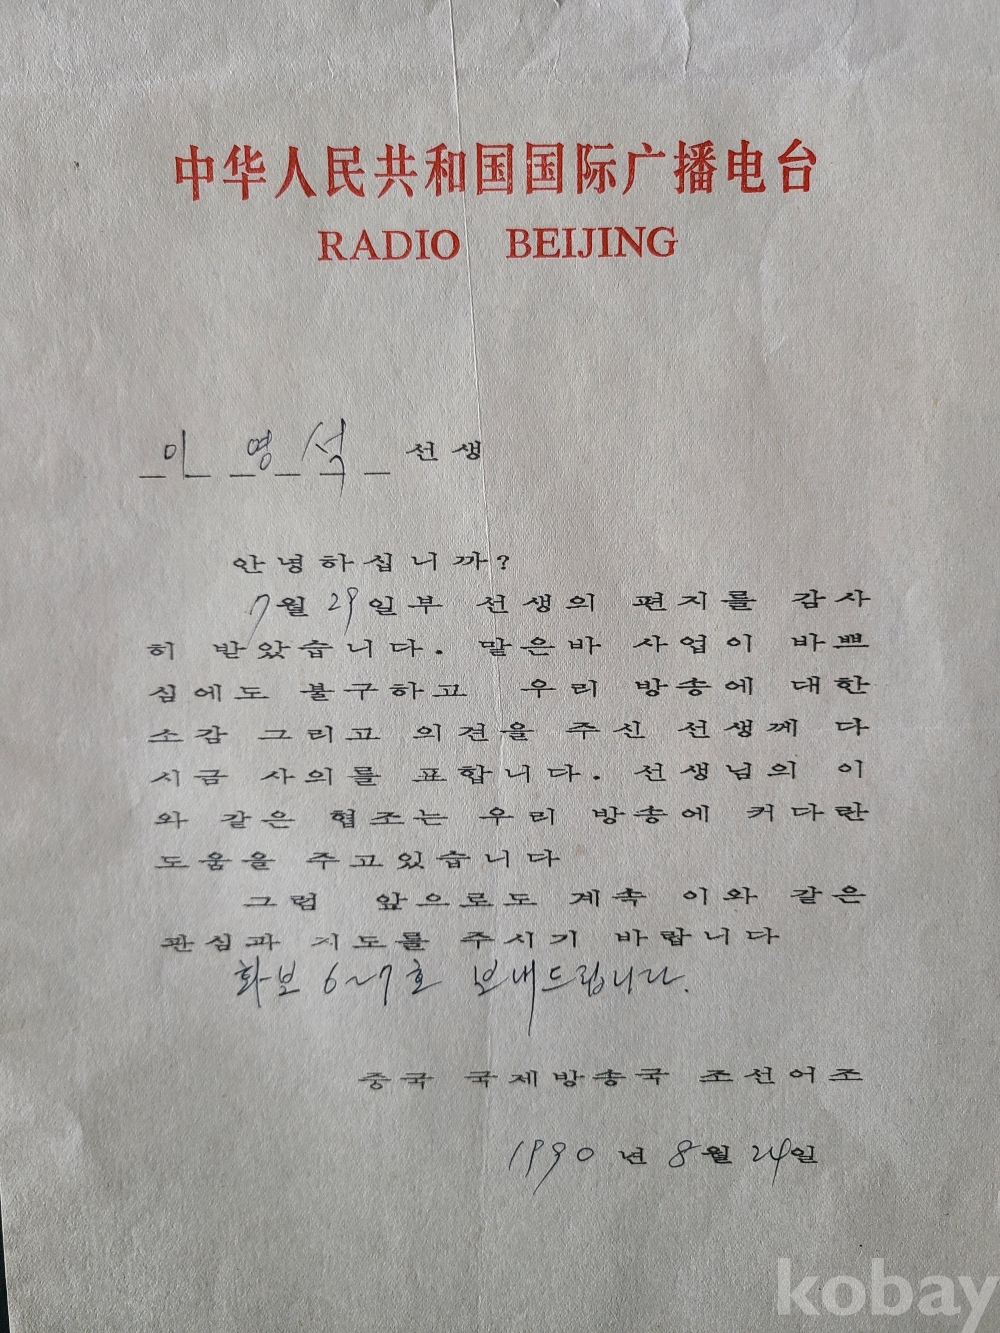 中华人民共和国国际广播电台
RADIO BEIJING
이영석 선생
안녕하십니까?
7월 29일부 선생의 편지를 감사
히 받았습니다. 맡은바 사업이 바쁘
심에도 불구하고 우리 방송에 대한
소감 그리고 의견을 주신 선생께 다
시금 사의를 표합니다. 선생님의 이
와 같은 협조는 우리 방송에 커다란
도움을 주고있습니다
그럼 앞으로도 계속 이와 같은
관심과 지도를 주시기 바랍니다
화보 6~7호 보내드립니다.
중국 국제방송국 조선어조
1990년 8월 24일
kobay